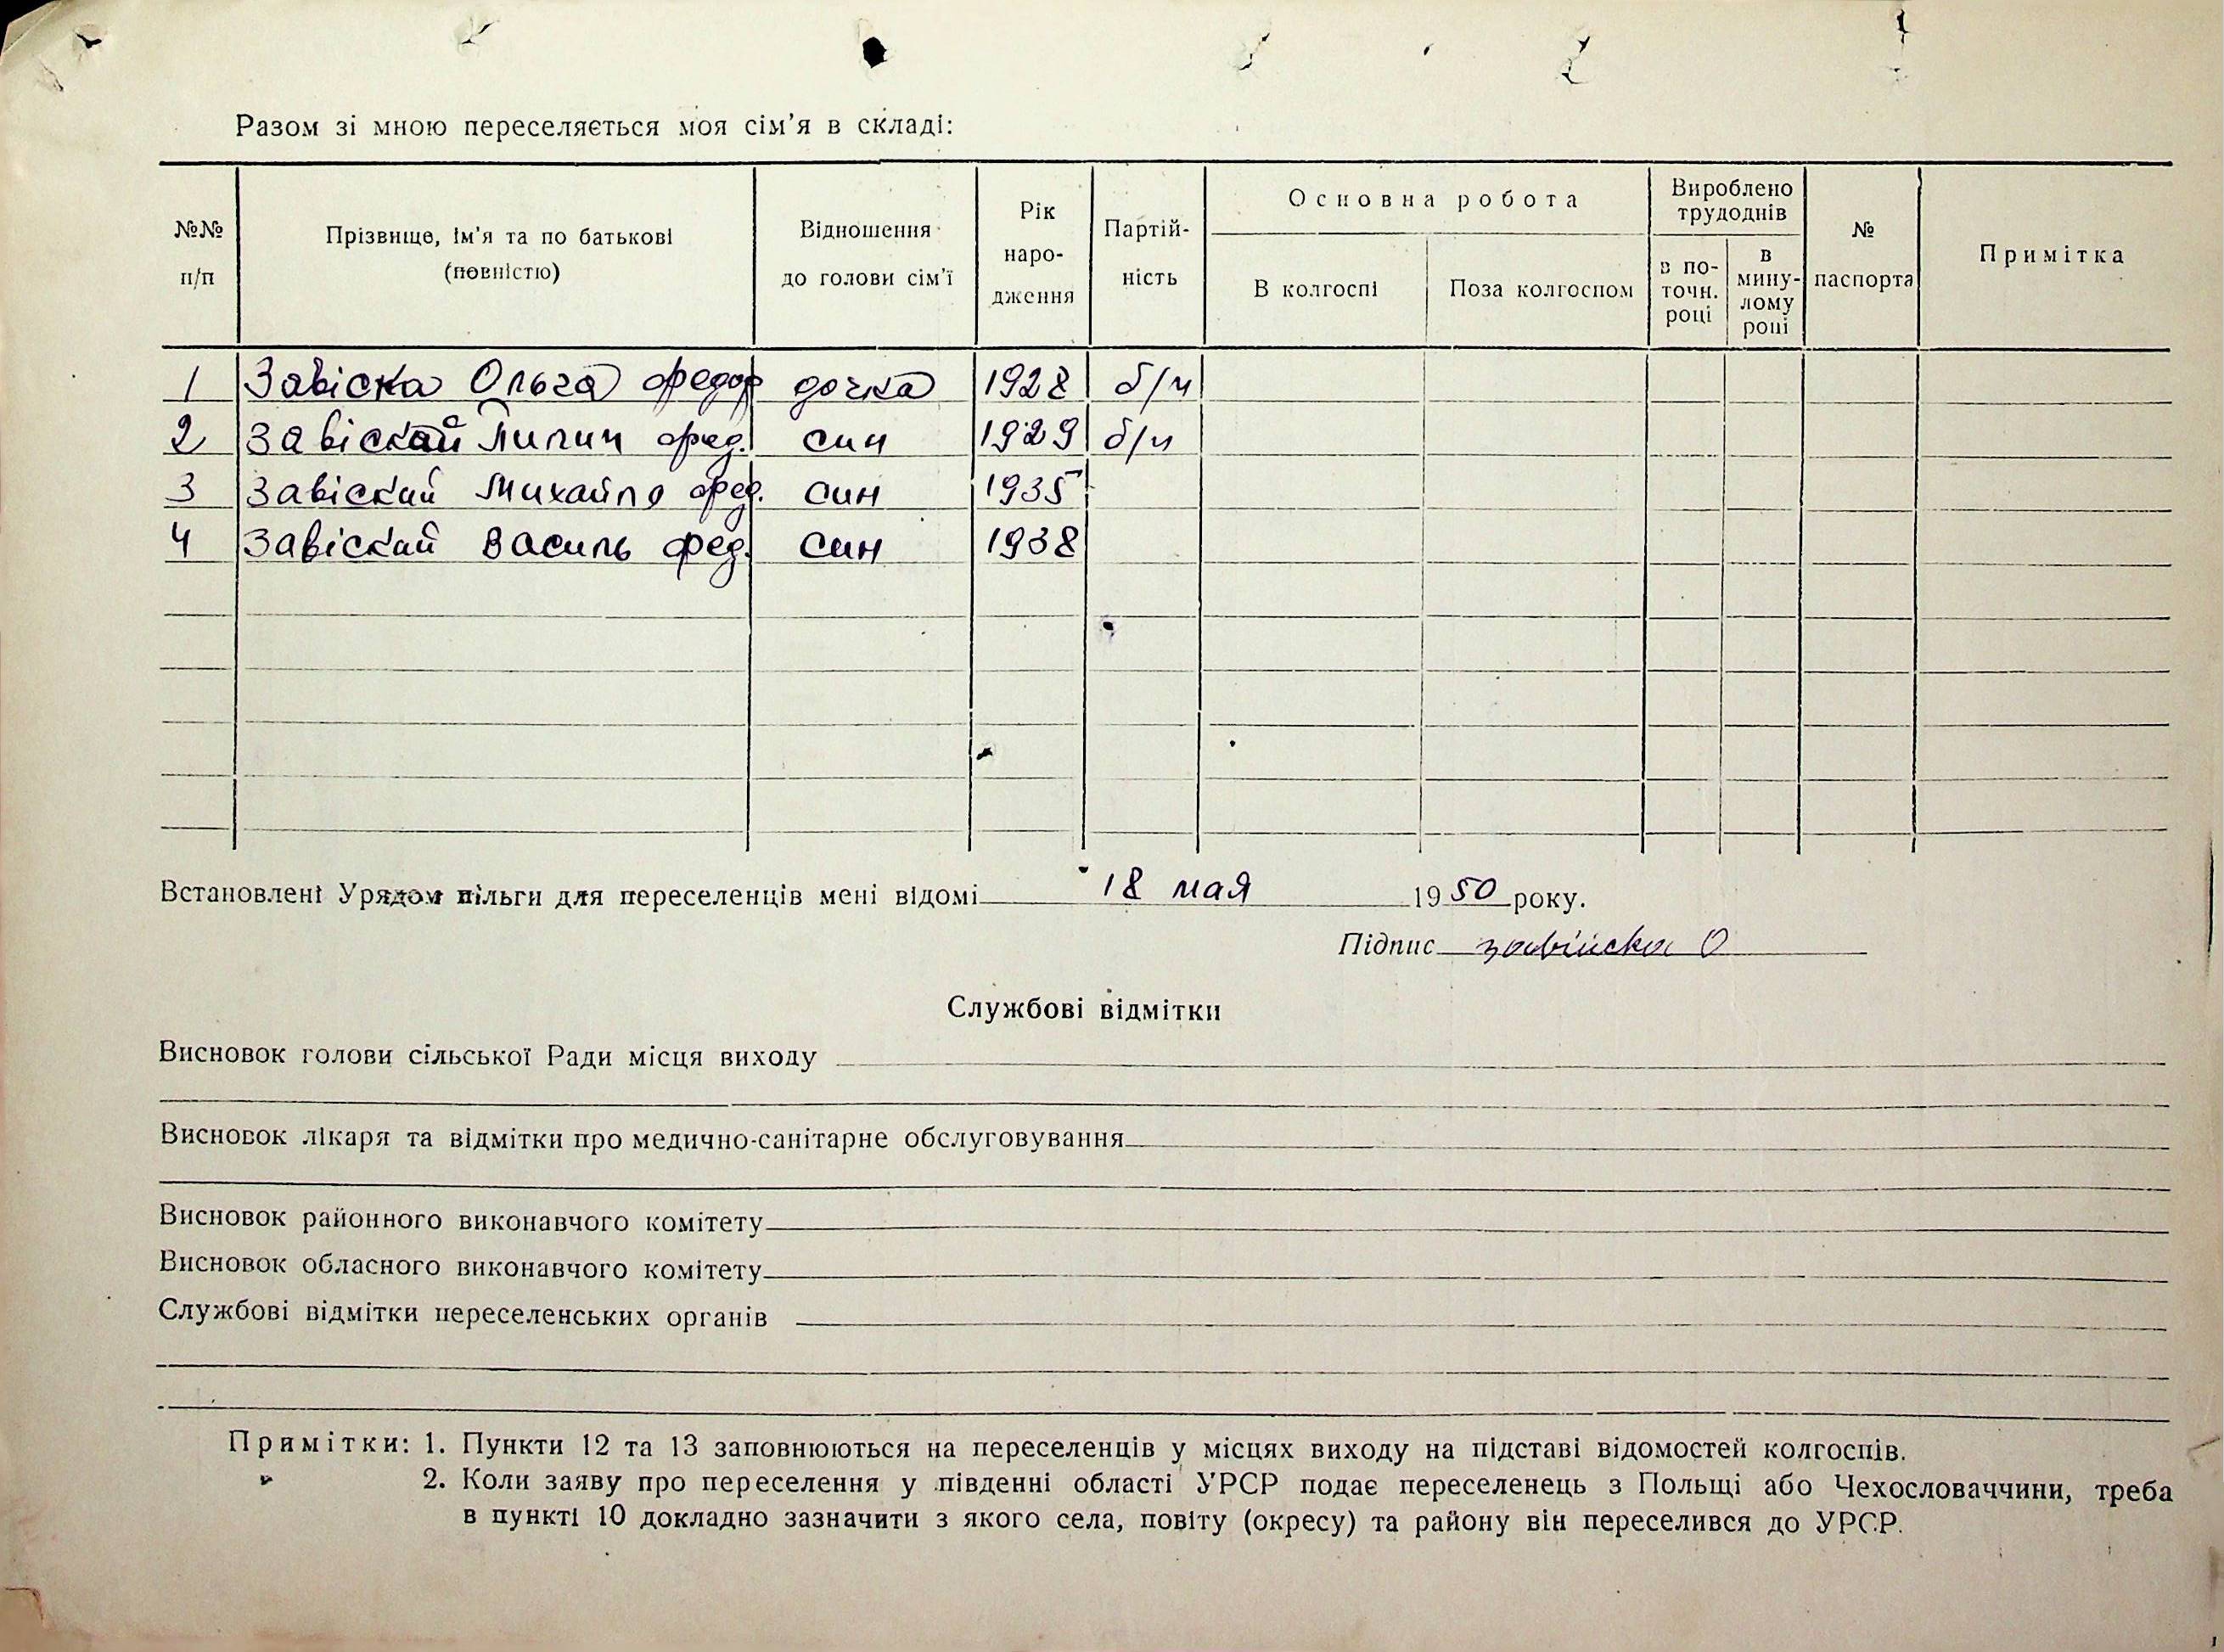 Разом зі мною переселяється моя сім’я в складі:
№№ п/п
Прізвище, ім’я та по батькові (повністю)
Відношення до голови сім’ї
Рік народження
Партійність
Основна робота
В колгоспі
Поза колгоспом
Вироблено трудоднів
в поточн. році
в минулому році
№ паспорта
Примітка
1 Завіска Ольга Федор дочка 1928 б/п
2 Завіский Пилип Фед. син 1929 б/п
3 Завіский Михайло Фед. син 1935
4 Завіский Василь Фед. син 1938
Встановлені Урядом пільги для переселенців мені відомі 18 мая 1950 року.
Підпис завійска О
Службові відмітки
Висновок голови сільської Ради місця виходу
Висновок лікаря та відмітки про медично-санітарне обслуговування
Висновок районного виконавчого комітету
Висновок обласного виконавчого комітету
Службові відмітки переселенських органів
Примітки: 1. Пункти 12 та 13 заповнюються на переселенців у місцях виходу на підставі відомостей колгоспів.
2. Коли заяву про переселення у південні області УРСР подає переселенець з Польщі або Чехословаччини, треба
в пункті 10 докладно зазначити з якого села, повіту (окресу) та району він переселився до УРСР.